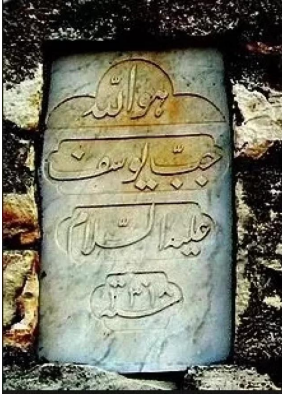 هو اللّه
جبّ يوسف
عليه السّلام
سنة